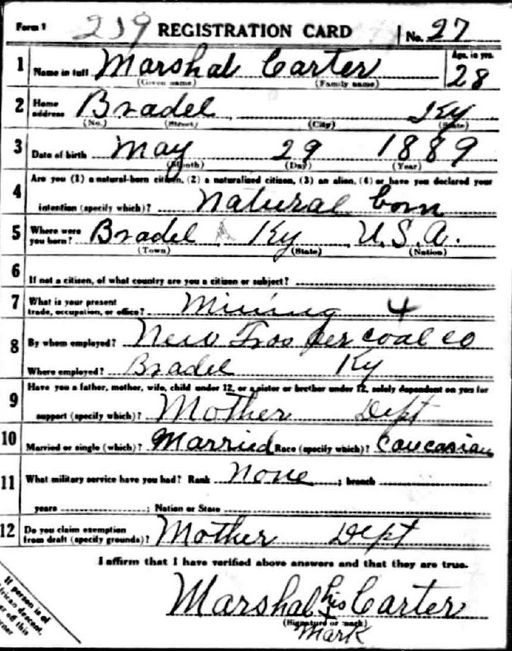 Form 1 219 REGISTRATION CARD No. 27
1 Name in full Marshal Carter Age, in yrs. 28
(Given name) (Family name)
2 Home address Bradel Ky
(No.) (Street) (City) (State)
3 Date of birth May 29 1889
(Month) (Day) (Year)
Are you (1) a natural-born citizen, (2) a naturalized citizen, (3) an alien, (4) or have you declared your
4 intention (specify which)? Natural born
5 Where were you born? Bradel Ky U.S.A.
(Town) (State) (Nation)
6 If not a citizen, of what country are you a citizen or subject?
7 What is your present trade, occupation, or office? Mining 4
8 By whom employed? New Prosper coal co
Where employed? Bradel Ky
9 Have you a father, mother, wife, child under 12, or a sister or brother under 12, solely dependent on you for
support (specify which)? Mother Dept
10 Married or single (which)? Married Race (specify which)? Caucasian
11 What military service have you had? Rank None ; branch
years ; Nation or State
12 Do you claim exemption from draft (specify grounds)? Mother Dept
I affirm that I have verified above answers and that they are true.
Marshal his Carter
(Signature or mark)
Mark
If person is of
African descent,
corner